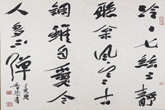 泠泠七絃上靜
聽松風寒古
調雖自愛今
人多不彈